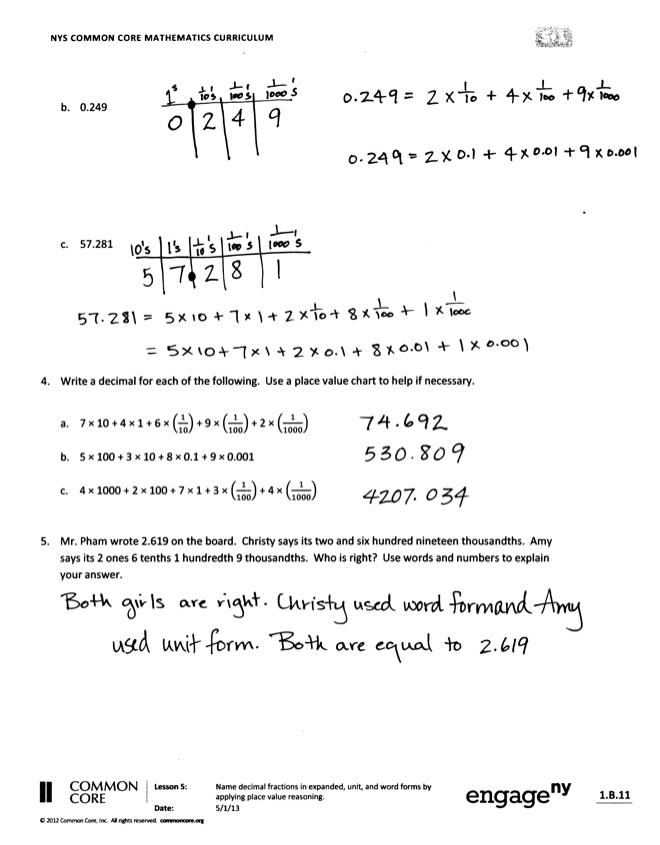 NYS COMMON CORE MATHEMATICS CURRICULUM
b. 0.249
1's 1/10's 1/100's 1/1000's
0 2 4 9
0.249 = 2 × 1/10 + 4 × 1/100 + 9 × 1/1000
0.249 = 2 × 0.1 + 4 × 0.01 + 9 × 0.001
c. 57.281
10's 1's 1/10's 1/100's 1/1000's
5 7 . 2 8 1
57.281 = 5 × 10 + 7 × 1 + 2 × 1/10 + 8 × 1/100 + 1 × 1/1000
= 5 × 10 + 7 × 1 + 2 × 0.1 + 8 × 0.01 + 1 × 0.001
4. Write a decimal for each of the following. Use a place value chart to help if necessary.
a. 7 × 10 + 4 × 1 + 6 × (1/10) + 9 × (1/100) + 2 × (1/1000) 74.692
b. 5 × 100 + 3 × 10 + 8 × 0.1 + 9 × 0.001 530.809
c. 4 × 1000 + 2 × 100 + 7 × 1 + 3 × (1/100) + 4 × (1/1000) 4207.034
5. Mr. Pham wrote 2.619 on the board. Christy says its two and six hundred nineteen thousandths. Amy
says its 2 ones 6 tenths 1 hundredth 9 thousandths. Who is right? Use words and numbers to explain
your answer.
Both girls are right. Christy used word form and Amy
used unit form. Both are equal to 2.619
COMMON CORE
Lesson 5: Name decimal fractions in expanded, unit, and word forms by
applying place value reasoning.
Date: 5/1/13
engageny
1.B.11
© 2012 Common Core, Inc. All rights reserved. commoncore.org